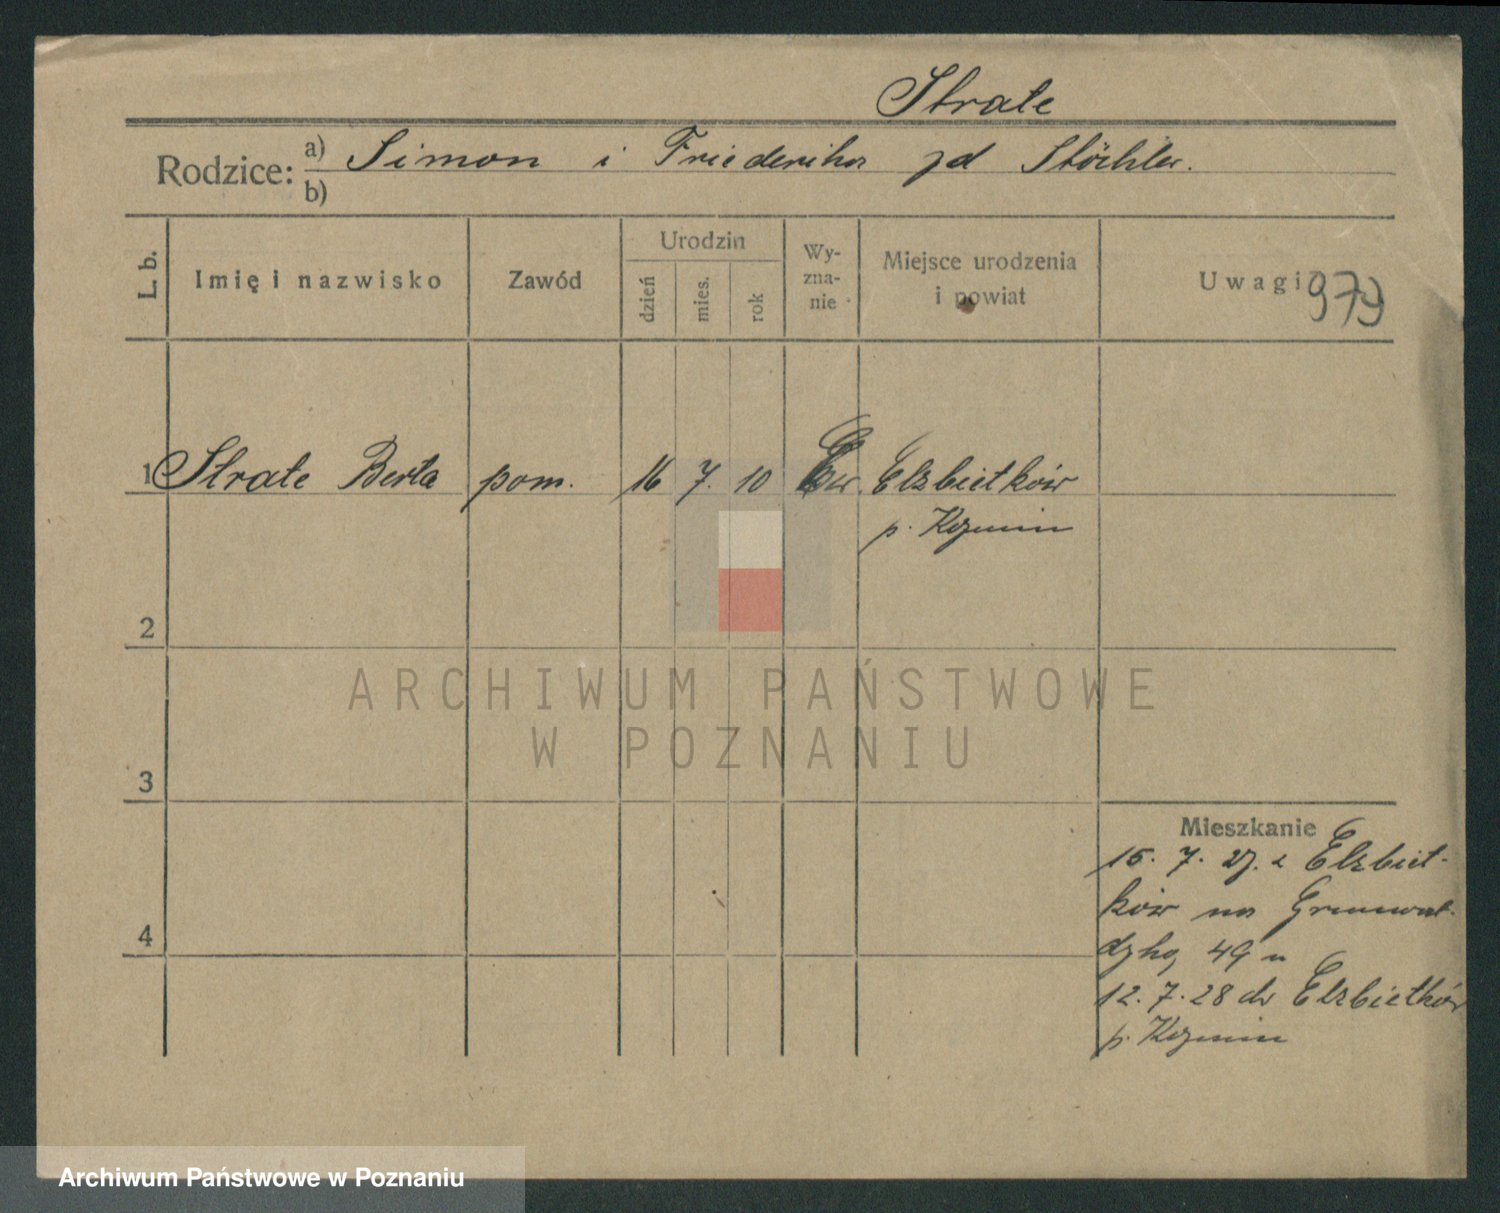 Strate
Rodzice: a) Simon i Friederika zd Stöchler.
b)
L. b.
Imię i nazwisko
Zawód
Urodzin
dzień
mies.
rok
Wy-
zna-
nie
Miejsce urodzenia
i powiat
Uwagi
979
1 Strate Berta pom. 16 7. 10 Ew. Elzbietków
p. Kozmin
2
3
4
Mieszkanie
15. 7. 27. z Elzbiet-
ków na Grunwal-
dzką 49 u
12. 7. 28 do Elzbietków
p. Kozmin
ARCHIWUM PAŃSTWOWE
W POZNANIU
Archiwum Państwowe w Poznaniu